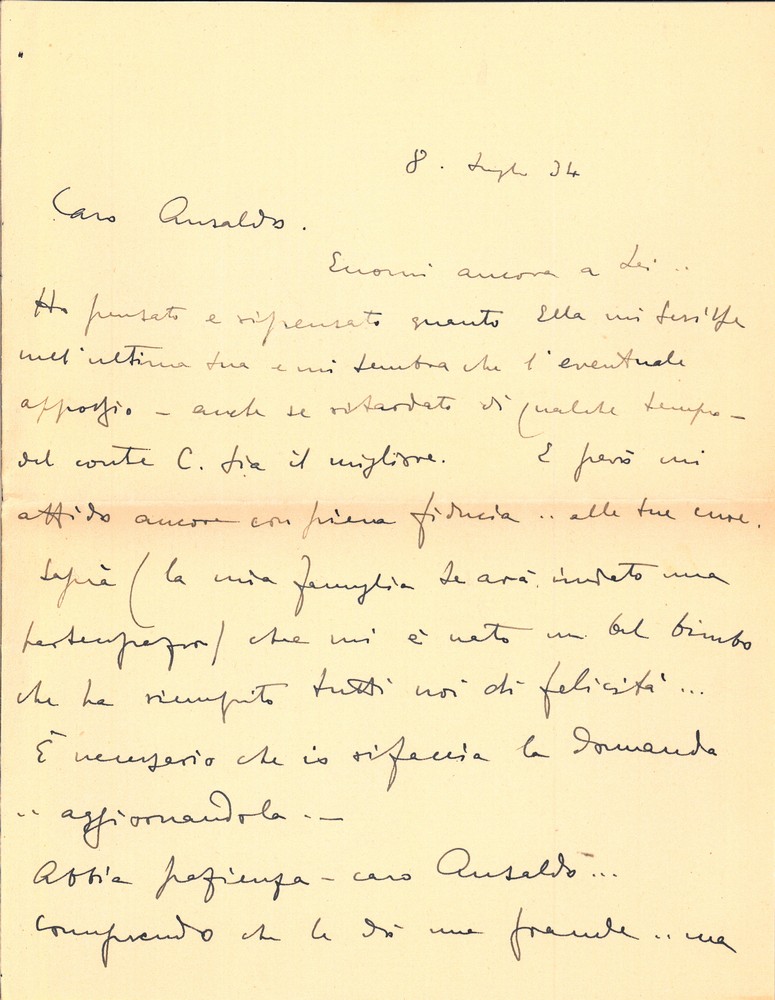 8. Luglio 34
Caro Ansaldo.
Eccomi ancora a Lei..
Ho pensato e ripensato quanto Ella mi scrisse
nell'ultima sua e mi sembra che l'eventuale
appoggio - anche se ritardato di qualche tempo -
del conte C. sia il migliore. E però mi
affido ancora con piena fiducia .. alle sue cure.
Saprà (la mia famiglia Le avrà inviato una
partecipazione) che mi è nato un bel bimbo
che ha riempito tutti noi di felicità...
È necessario che io rifaccia la domanda
.. aggiornandola . -
Abbia pazienza - caro Ansaldo...
Comprendo che le dò una grande .. ma